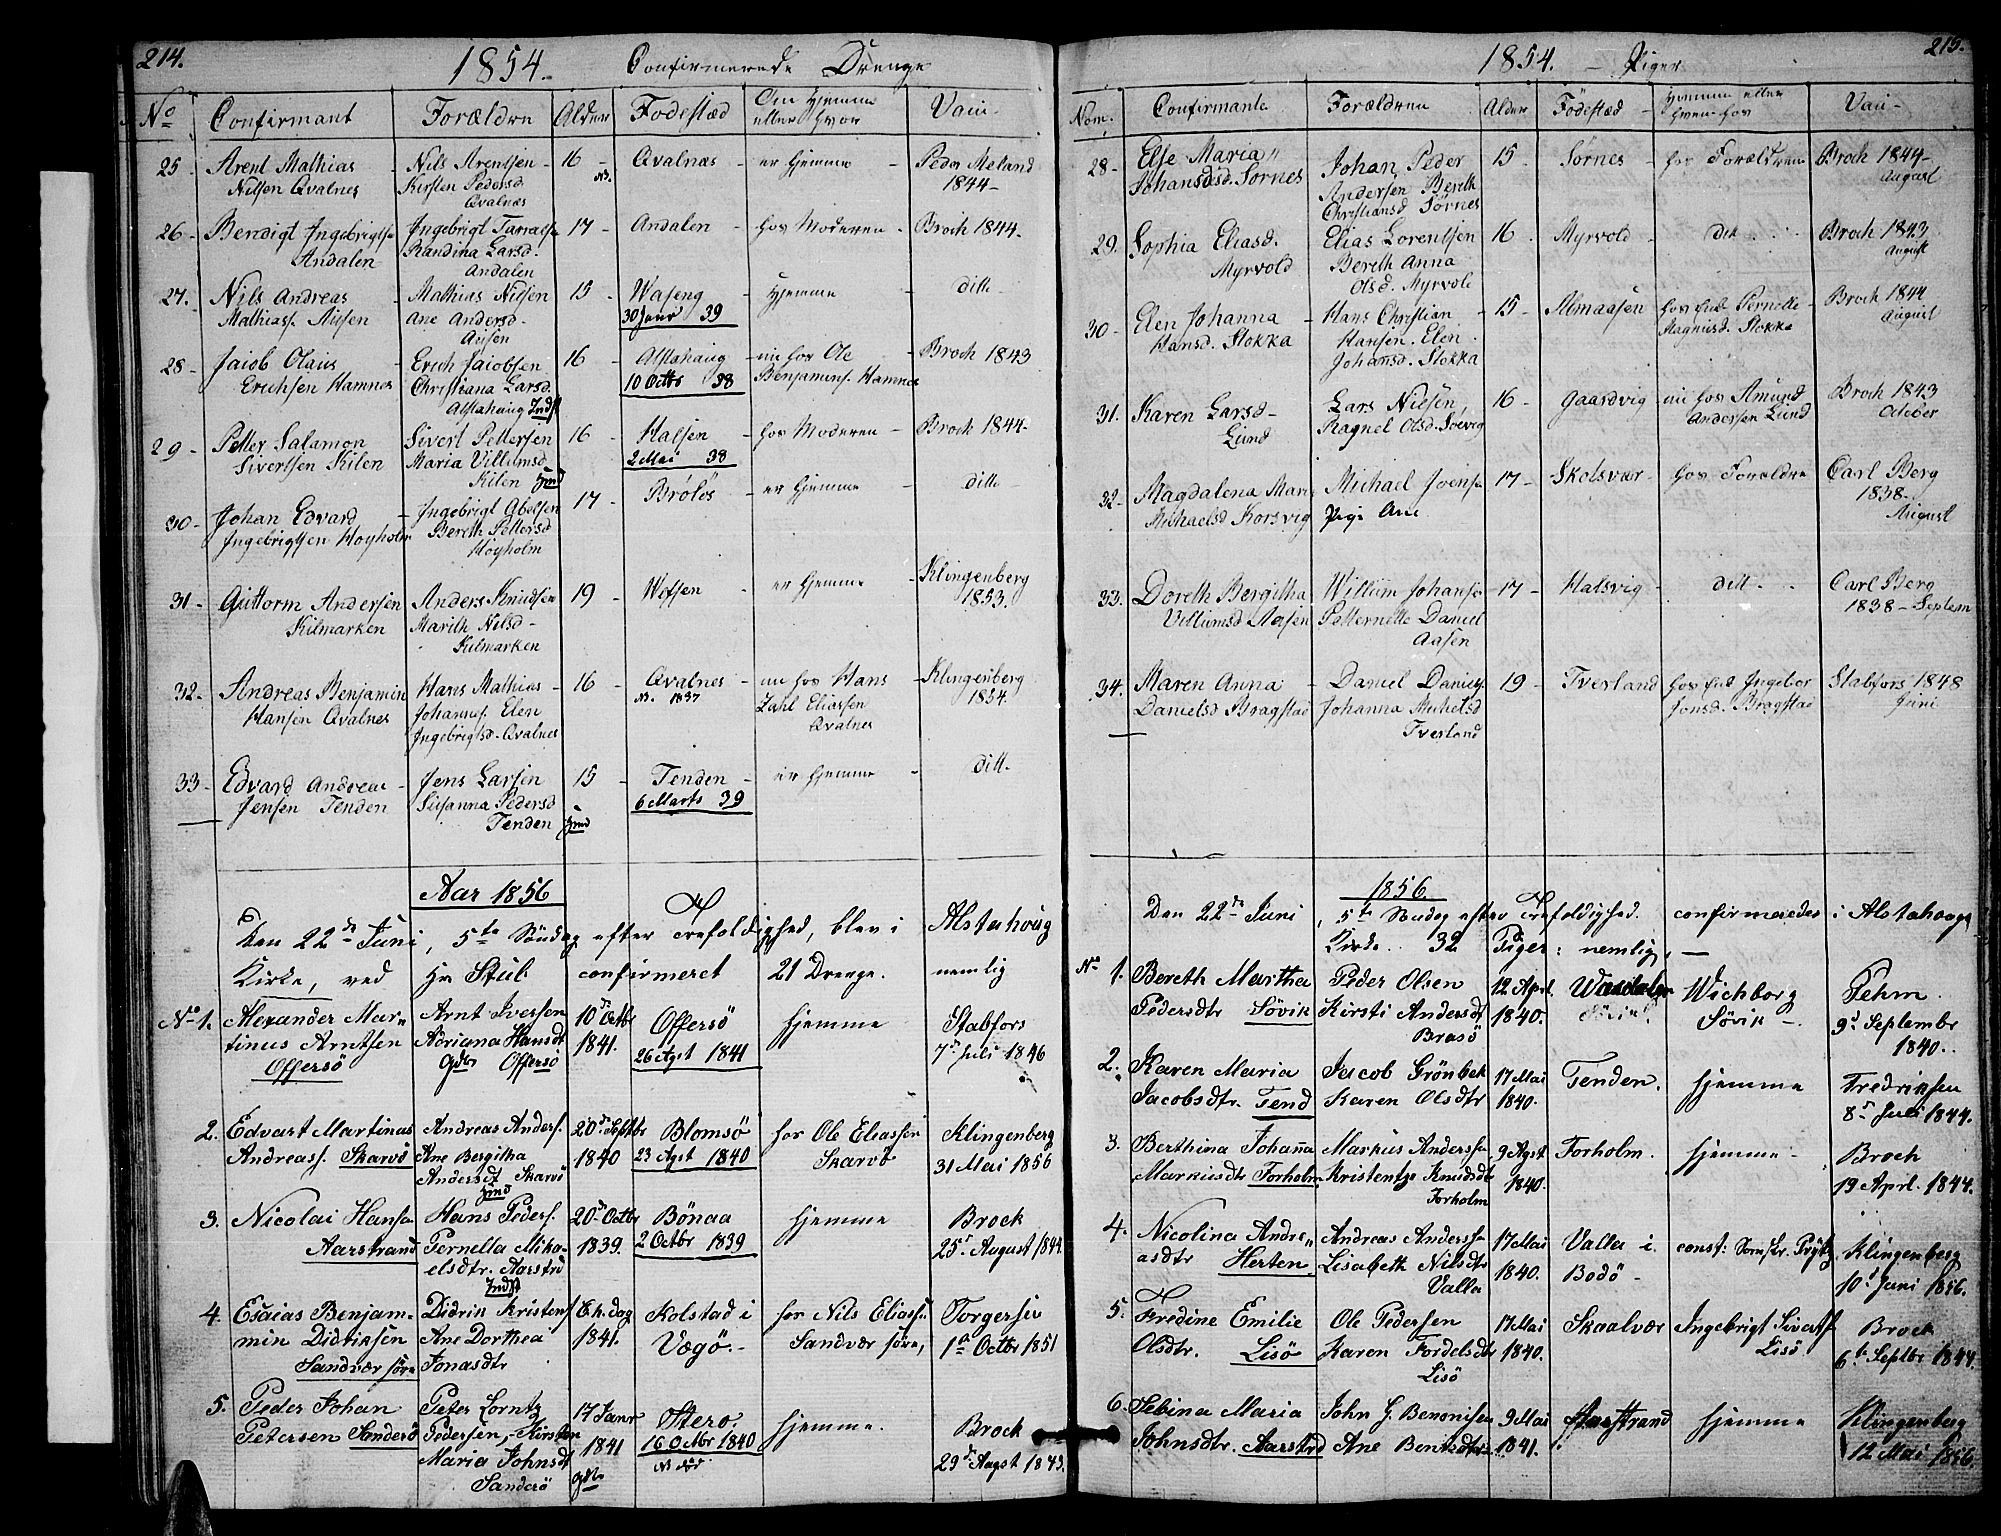 214.
1854. Confirmerede Drenge
No Confirmant Forældre Alder Fodestæd Om Hjemme eller hvor Vacci-
25 Arent Mathias Nilsen Qvalnes - Nils Arentsen Kirsten Pedersd Qvalnæs 16 - Qvalnæs - er hjemme - Peder Meland 1844-
26 - Bendigt Ingebrigtse Andalen Randina Larsd. Andalen 17 - Andalen - hos Moderen - Broch 1844.
27. Nils Andreas Mathiass. - Mathias Nilsen Ane Andersd- 15 - 30 Janr 39 Hjemme - ditto -
28 - Jacob Olaus Erichsen Hamnes - Erich Jacobsen Christiana Larsd. Alstahaug Indst 16 - Alstahaug 10 Octbr 38 - nu hos Ole Benjamins. Hamnes - Broch 1843
29 - Petter Salamon Sivertsen Kilen Sivert Pettersen Maria Villumsd Kilen 16 - Halsen 2 Mai 38 - hos Moderen - Broch 1844-
30 - Johan Edvard Ingebrigtsen Høyholm - Ingebrigt Abelsen Bereth Pettersd Høyholm 17 - Brøløs - er hjemme - ditto -
31 - Guttorm Andersen Kilmarken Anders Knudsen Marith Nilsd- Kulmarken 19 - Wefsen - er hjemme - Klingenberg 1853.
32 - Andreas Benjamin Hansen Qvalnes Hans Mathias - Johannes. Elen Ingebrigtsd. Qvalnes 16 - Qvalnes 1837 - nu hos Hans Zahl Eliassen Qvalnes - Klingenberg 1854.
33 - Edvard Andreas Jensen Tenden - Jens Larsen Susanna Pedersd Tenden 15 - Tenden - 6 Marts 39 er hjemme - ditt -
Aar 1856
Den 22de Juni, 5te Søndag efter Trefoldighed, blev i Alstahoug
Kirke, ved Hr Stub confirmeret 21 Drenge. nemlig
No 1. Alexander Martinus Arntsen Offersö Arnt Iversen Adriana Hansdt Offersö 10de Octbr 1841. Offersö 26 Agst 1841 hjemme Stabfors 7de Juli 1846
2. Edvart Martinus Andreass. Skarvö Andreas Anders. Ane Bergitha Andersdt Skarvö 20de Septbr 1840 Blomsö 23 Agst 1840 hos Ole Eliassen Skarvö Klingenberg 31 Mai 1856
3. Nicolai Hansen Aarstrand Hans Peders. Pernella Mikaelsdtr. Aarstrd Indst 20de Octbr 1839. Bönaa 2 Octbr 1839 hjemme Brock 25de August 1844
4. Esaias Benjammin Didriksen Sandvær söre Didrik Kristens Ane Dorthea Jonasdtr 1841. Kolstad i Vægö.- hos Nils Eliass. Sandvær söre, 1a Octbr 1851
5. Peder Johan Petersen Sanderö Peter Lorntz Pedersen, Kirsten Maria Johnsdt Sanderö 17 Janr 1841 16 Octbr 1840 hjemme. Brock 29de Augst 1843.
215.
1854. - Piger
Nom. Confirmante Forældrene Alder Födestæd Hjemme eller hvem hos Vaci-
28 - Else Maria Johansdsd. Sørnes Johan Peder Andersen Bereth Christiansd Sørnes 15 - Sørnes - hos Forældrene Broch 1844- August
29. Sophia Eliasd. Myrvold Elias Lorentsen Bereth Anna Olsd. Myrvold 16 - Myrvold - dito Broch 1843 August
30 - Elen Johanna Hansd. Stokka - Hans Christian Hansen. Elen Johansd. Stokka 15 - Almaasen hos Pernelle Magnusd. Stokka - Broch 1844 August
31. Karen Larsd- Lund Lars Nilsen Ragnel Olsd. Soevig 16 - Gaardvig - nu hos Amund Andersen Lund Broch 1843 October
32 - Magdalena Mari Michaelsd Korsvig Michael 17 - Skolsvær - hos Forældre Carl Berg 1838- August
33. Doreth Bergitha Villumsd Aasen Willum Johanse Petternette Daniel Aasen 17 - Halsvig - ditt - Carl Berg 1838 - Septem
34. Maren Anna Danielsd Bragstad - Daniel Daniels. Johanna Michelsd Tverland 19 - Tverland hos Ingebor Jonsd. Bragstad Stabfors 1848 Juni
1856.
Den 22de Juni, 5te Søndag efter Trefoldighed. confirmeredes i Alstahoug
Kirke.. 32 Piger: nemlig, -
No 1. Bereth Martha Pedersdtr Søvik Peder Olsen Kirsti Andersdt Brasö 12 April. 1840. Wichborg Søvik -. Fehm. 9de Septembr 1840..
2. Karen Maria Jacobsdtr. Tend Jacob Grönbek Karen Olsdtr 17 Mai 1840. Tenden. hjemme Fredriksen 8de Juli 1844.
3. Berthina Johana Markusdtr Forholm. Markus Anderss. Kristentze Knudsdt Forholm 9 Agst 1840. Forholm. hjemme - Broch 19 April. 1844.
4. Nicolina Andreasdtr Herten. Andreas Anderss. Lisabeth Nilsdtr Valla 17 Mai 1840. Valla i Bodö - const: Klingenberg 10de Juni 1856.
5. Fredine Emilie Olsdtr. Lisö Ole Pedersen Karen Fordelsdtr Lisö 17 Mai 1840. Skaalvær Ingebrigt Sivertss Lisö Brock 6te Septbr 1844.
6. Sebina Maria Johnsdtr. Aarstrd John J. Benonisen Ane Bentsdtr 9 Mai 1841. Aarstrand hjemme Klingenberg 12 Mai 1856.